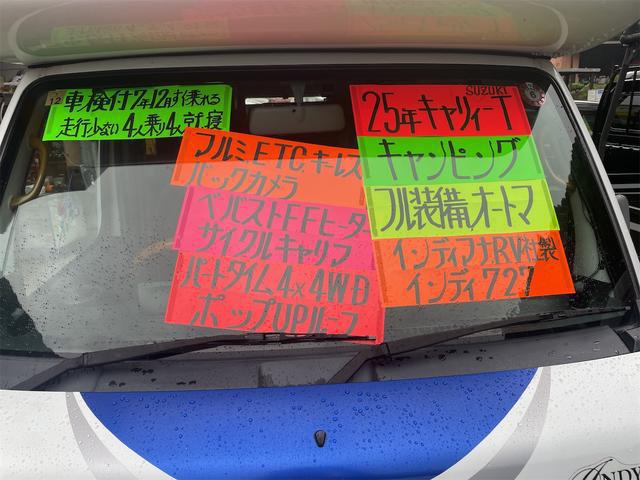 12
車検付7年12月すぐ乗れる
走行少ない 4人乗り4人就寝
アルミETCキーレス
バックカメラ
ベバストFFヒーター
サイクルキャリア
パートタイム4×4WD
ポップUPルーフ
SUZUKI
25年キャリィーT
キャンピング
フル装備オートマ
インディアナRV社製
インディ727